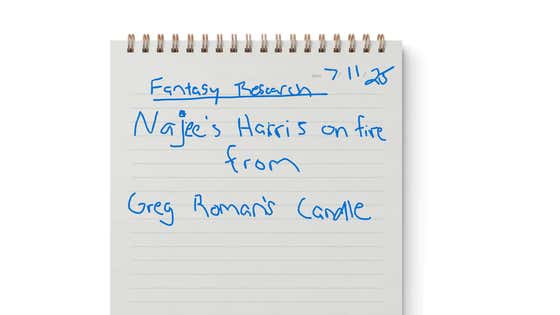 7 11 25
Fantasy Research
Najee's Harris on fire
from
Greg Roman's Candle